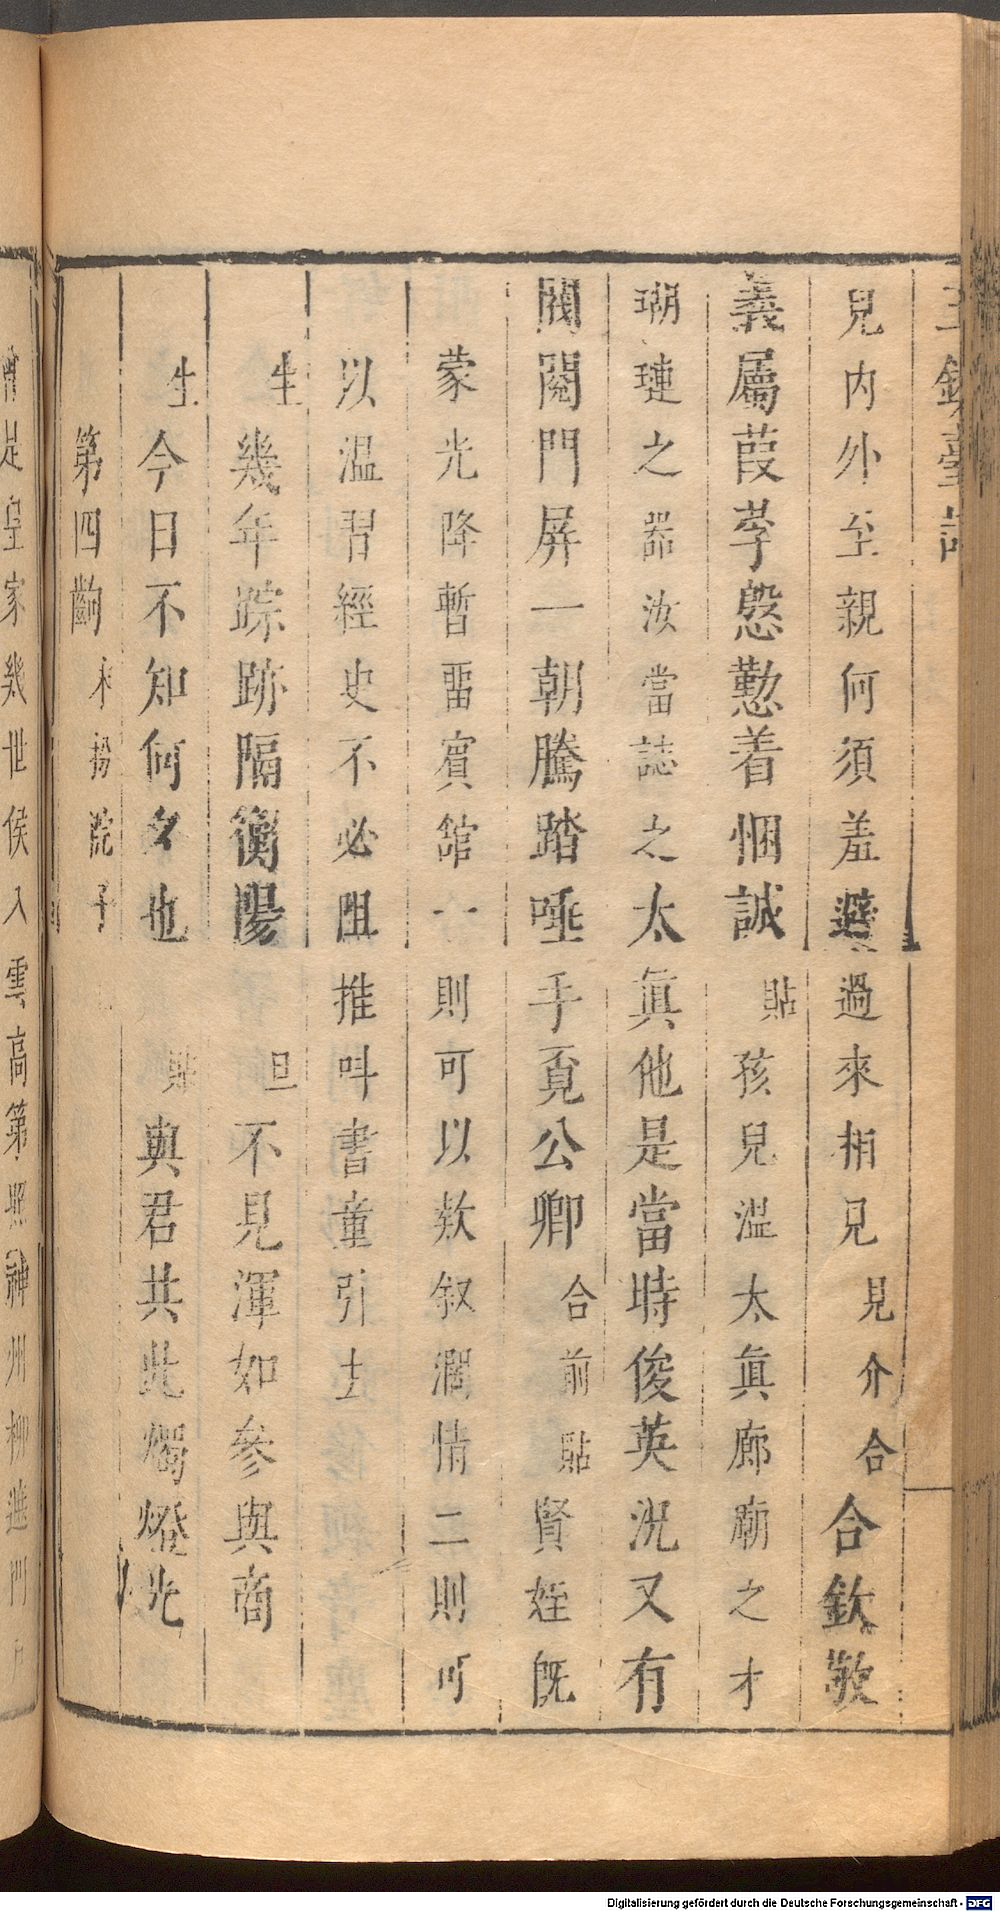 兒内外至親何須羞避過來相見見介合合欽敬
義屬葭莩慇懃着悃誠貼孩兒溫太眞廊廟之才
瑚璉之器汝當誌之太眞他是當時俊英況又有
閥閱門屏一朝騰踏唾手覔公卿合前貼賢姪旣
蒙光降暫畱賓舘一則可以敘叙濶情二則可
以溫習經史不必阻推呌書童引
生幾年踪跡隔衡陽旦不見渾如參與商
生今日不知何夕也貼與君共此燭燈光
第四齣末扮院子
足皇家幾世侯入雲高第照神州柳遮門
Digitalisierung gefördert durch die Deutsche Forschungsgemeinschaft - DFG